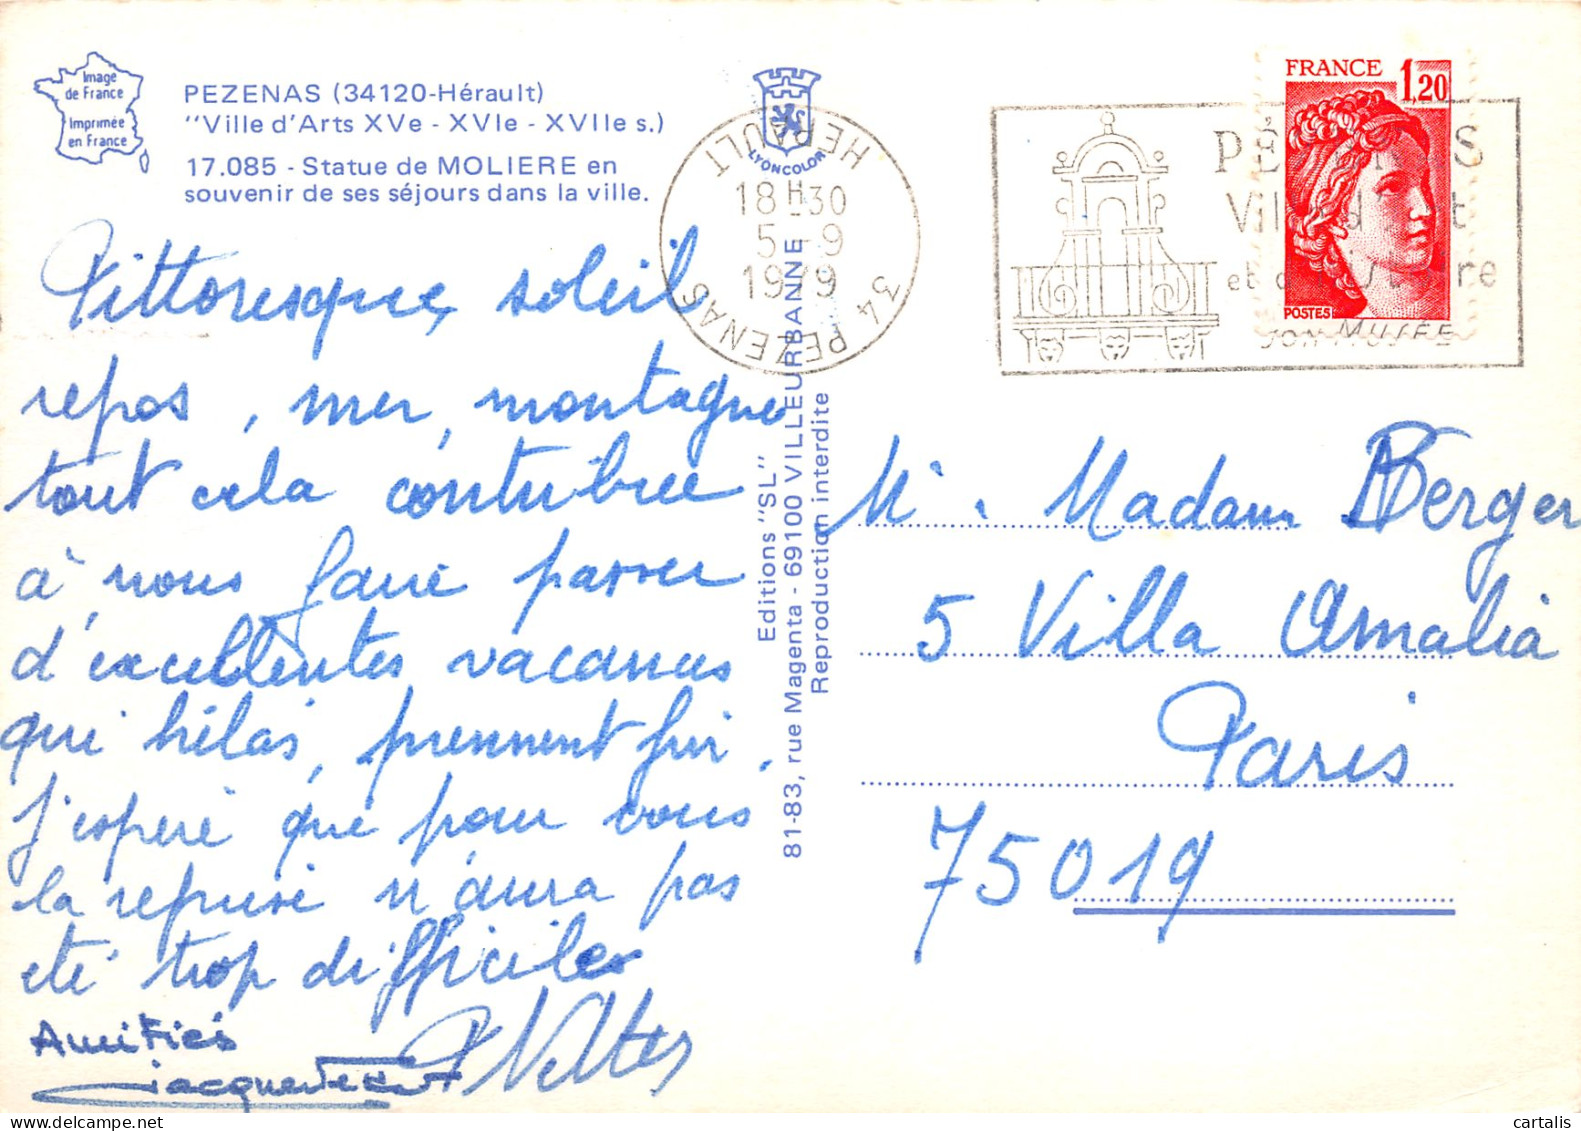 Image
de France
Imprimée
en France
PEZENAS (34120-Hérault)
"Ville d'Arts XVe - XVIe - XVIIe s.)
17.085 - Statue de MOLIERE en
souvenir de ses séjours dans la ville.
LYONCOLOR
34 PEZENAS
HERAULT
18H30
5 - 9
1979
FRANCE
1,20
POSTES
SON MUSÉE
Pittoresque, soleil
repos, mer, montagne
tout cela contribue
à nous faire passer
d'excellentes vacances
qui hélas, prennent fin.
J'espère que pour vous
la reprise n'aura pas
été trop difficile
Amitiés
Editions "SL"
81-83, rue Magenta - 69100 VILLEURBANNE
Reproduction interdite
Mr. Madame Berger
5 Villa Amalia
Paris
75019
cartalis